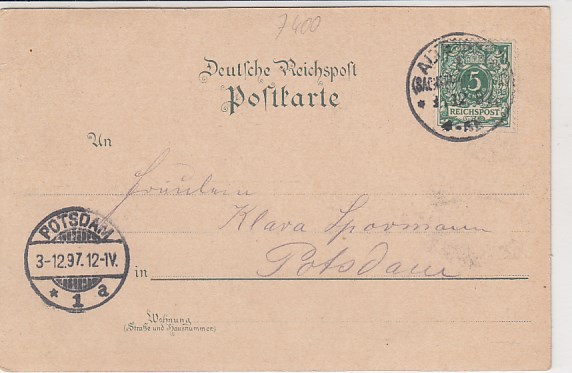 7400
Deutsche Reichspost
Postkarte
5
REICHSPOST
An
Fräulein
Klara Spormann
POTSDAM
3-12.97.12-1V.
* 1 a
in Potsdam
Wohnung
(Straße und Hausnummer)